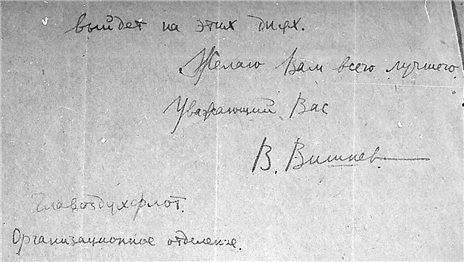 выйдет на этих днях.
Желаю Вам всего лучшего.
Уважающий Вас
В. Вишнев
Главоздухфлот.
Организационное отделение.